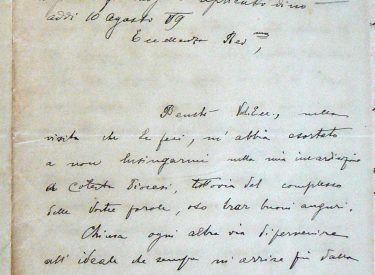 addì 10 agosto
Eccellenza Rev.ma,
Benché V. Ecc., nella
visita che Le feci, m'abbia esortato
a non lusingarmi nella mia incardinazione
a cotesta Diocesi, tuttavia dal complesso
delle Vostre parole, oso trar buoni auguri.
Chiusa ogni altra via di pervenire
all'ideale che sempre m'arrise fin dalla